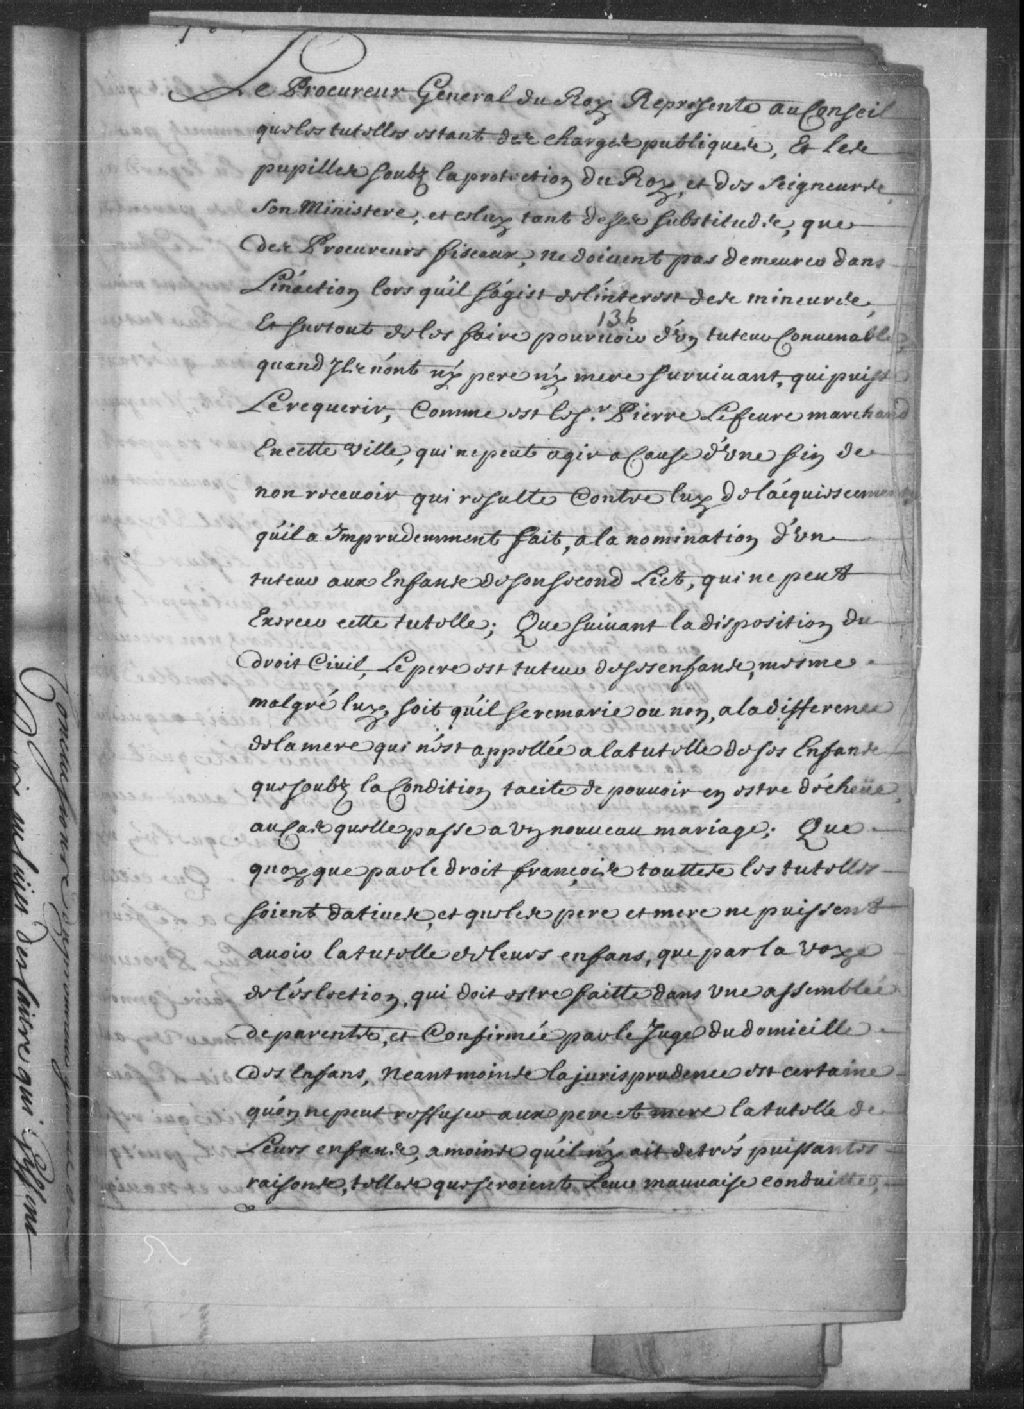 Le Procureur General du Roy Represente au Conseil
que les tutelles estant des charges publiques, Et les
pupilles soubz la protection du Roy, et des Seigneurs,
Son Ministere, et celuy tant de ses substituds, que
des Procureurs fiscaux, ne doivent pas demeurer dans
L'inaction lors qu'il s'agist de l'interest des mineurs,
136
Et surtout de les faire pourvoir d'un tuteur Convenable,
quand Ils n'ont ny pere ny mere survivant, qui puisse
Le requerir, Comme est le sr. Pierre Lefeure marchand
En cette Ville, qui ne peut agir a Cause d'une fin de
non recevoir qui resulte Contre luy de l'acquiescement
qu'il a Imprudemment fait, a la nomination d'un
tuteur aux Enfans de son second Lict, qui ne peut
Exercer cette tutelle; Que suivant la disposition du
droit Civil, Le pere est tuteur de ses enfans, mesme
malgré luy, soit qu'il se remarie ou non, a la difference
de la mere qui n'est appellée a la tutelle de ses Enfans
que soubz la Condition tacite de pouvoir en estre décheüe,
au Cas quelle passe a un nouveau mariage; Que
quoy que par le droit françois touttes les tutelles
soient datives, et que les pere et mere ne puissent
avoir la tutelle de leurs enfans, que par la voye
de l'eslection, qui doit estre faitte dans une assemblée
de parents, et Confirmée par le Juge du domicille
des Enfans, Neantmoins la jurisprudence est certaine
qu'on ne peut reffuser aux pere et mere la tutelle de
Leurs enfans, a moins qu'il n'y ait de trés puissantes
raisons, telles que seroient Leur mauvaise conduitte,